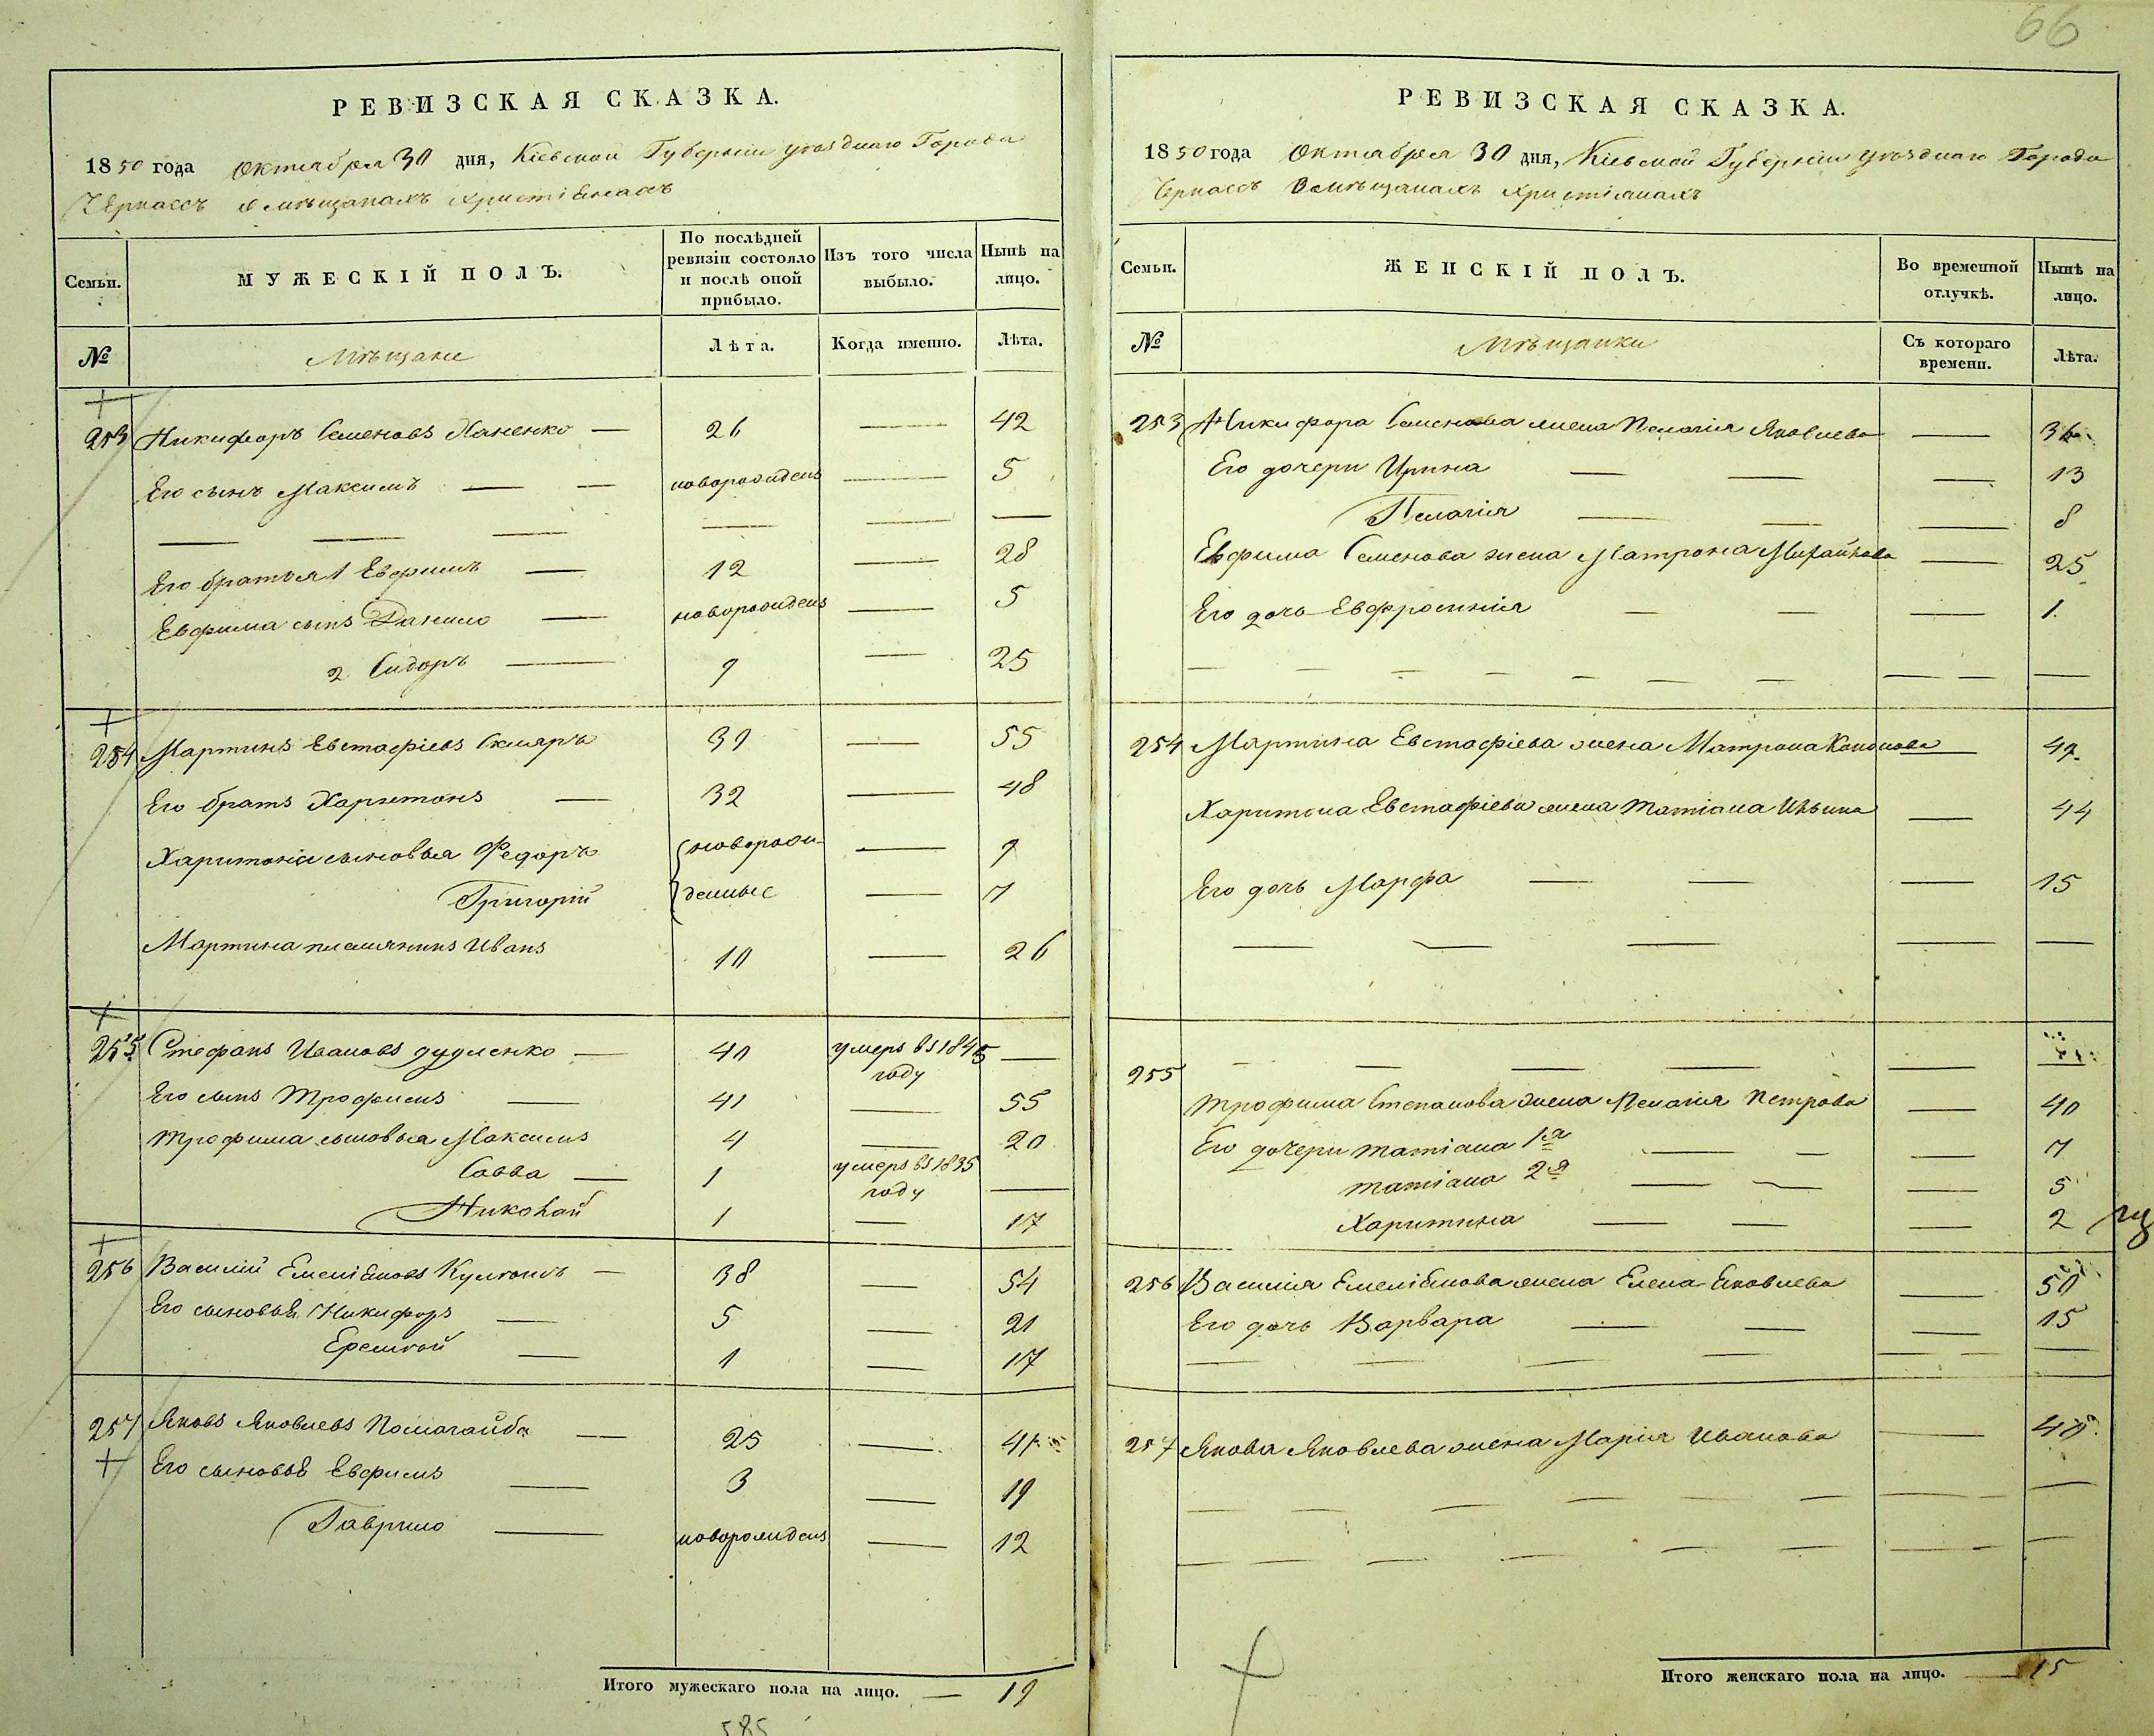 66
РЕВИЗСКАЯ СКАЗКА.
1850 года Октября 30 дня, Кіевской Губерніи уѣзднаго Города
Черкассъ о мѣщанахъ христіянахъ
Семьи.
МУЖЕСКІЙ ПОЛЪ.
По послѣдней ревизіи состояло и послѣ оной прибыло.
Изъ того числа выбыло.
Нынѣ на лицо.
№
Мѣщане
Лѣта.
Когда именно.
Лѣта.
253 Никифоръ Семеновъ Ханенко — 26 — 42
Его сынъ Максимъ — — новорожденъ — 5
Его братья 1 Евфимъ — 12 — 28
Евфима сынъ Данило — новорожденъ — 5
2 Сидоръ — 9 — 25
254 Мартинъ Евстафіевъ Скляръ 39 — 55
Его братъ Харитонъ — 32 — 48
Харитона сыновья Федоръ новорож- — 9
Григорій денные — 7
Мартина племянникъ Иванъ 10 — 26
255 Стефанъ Ивановъ дудченко — 40 умеръ въ 1845 году —
Его сынъ Трофимъ — 41 — 55
Трофима сыновья Максимъ 4 — 20
Савва — 1 умеръ въ 1835 году —
Николай 1 — 17
256 Василій Емеліяновъ — 38 — 54
Его сыновья Никифоръ — 5 — 21
Еремѣй — 1 — 17
257 Яковъ Яковлевъ Помагайба — 25 — 41
Его сыновья Евфимъ — 3 — 19
Гаврило — новорожденъ — 12
Итого мужескаго пола на лицо. — 19
585
РЕВИЗСКАЯ СКАЗКА.
1850 года Октября 30 дня, Кіевской Губерніи уѣзднаго Города
Черкассъ о мѣщанахъ христіянахъ
Семьи.
ЖЕНСКІЙ ПОЛЪ.
Во временной отлучкѣ.
Нынѣ на лицо.
№
Мѣщанки
Съ котораго времени.
Лѣта.
253 Никифора Семенова жена Пелагія Яковлева — 36
Его дочери Ирина — — — 13
Пелагія — — — 8
Евфима Семенова жена Матрона Михайлова — 25
Его дочь Евфросинія — — — 1
254 Мартина Евстафіева жена Матрона Кононова — 49
Харитона Евстафіева жена Татіана Ильина — 44
Его дочь Марфа — — — 15
255 — — — — —
Трофима Степанова жена Пелагія Петрова — 40
Его дочери Татіана 1я — — — 7
Татіана 2я — — — 5
Харитина — — — 2
256 Василія Емеліянова жена Елена Яковлева — 50
Его дочь Варвара — — — 15
257 Якова Яковлева жена Марія Иванова — 40
Итого женскаго пола на лицо. — 15